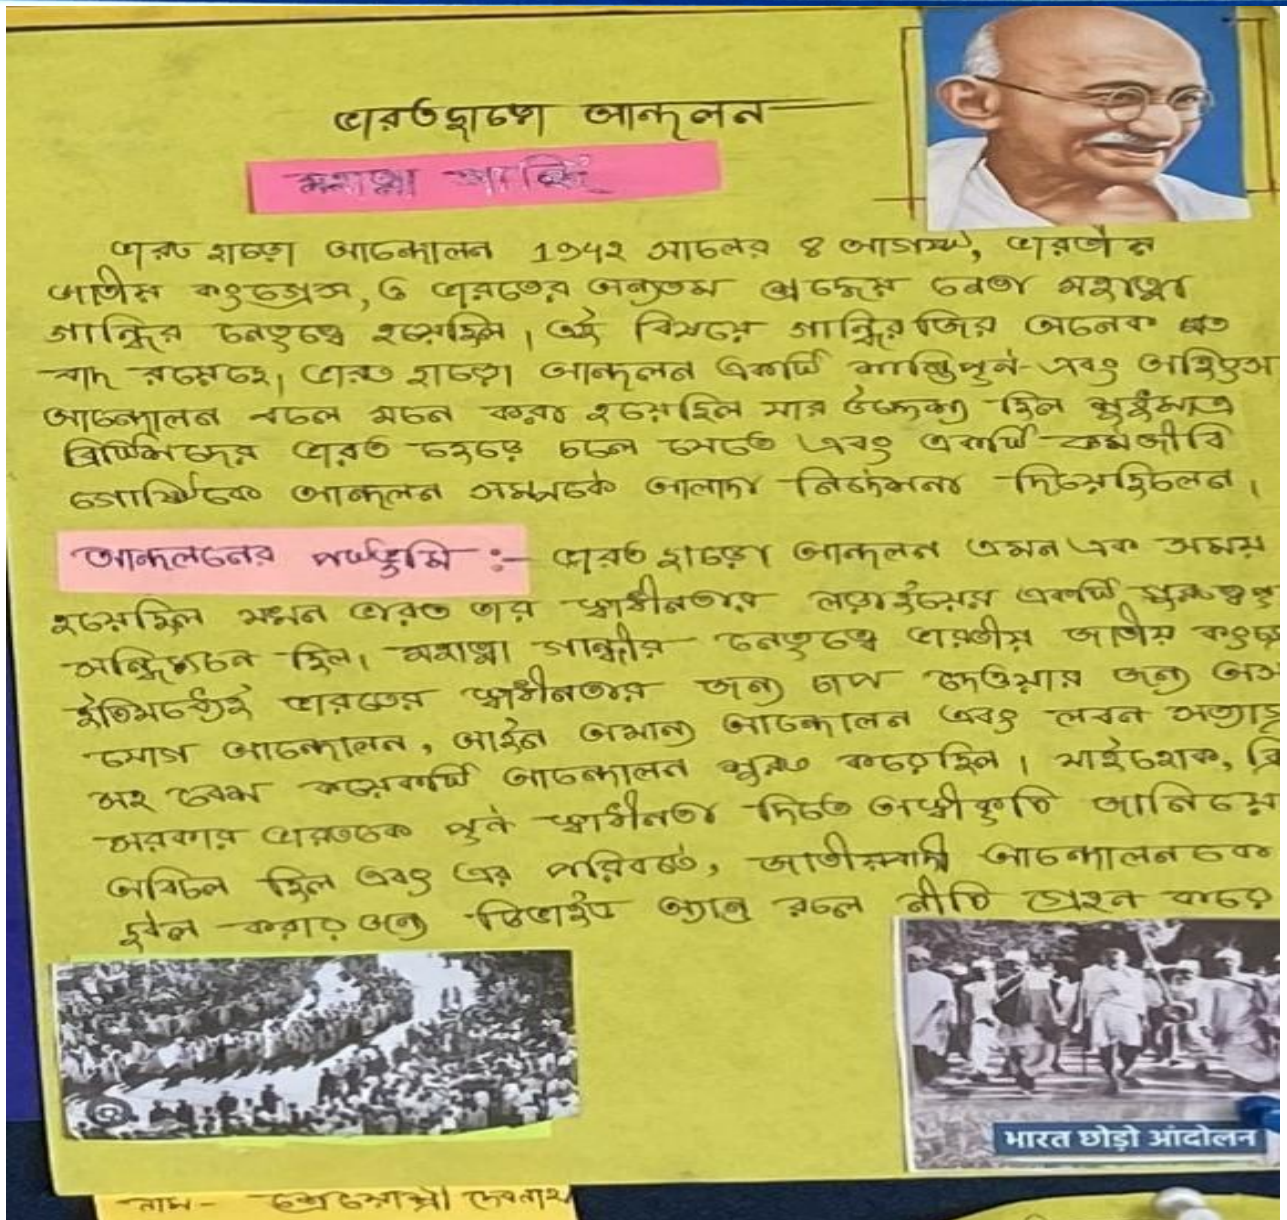 ভারতছাড়ো আন্দলন
মহাত্মা গান্ধি
ভারত ছাড়ো আন্দোলন 1942 সালের ৪ আগস্ট, ভারতীয়
জাতীয় কংগ্রেস, ও ভারতের অন্যতম শ্রদ্ধেয় নেতা মহাত্মা
গান্ধির নেতৃত্বে হয়েছিল। এই বিষয়ে গান্ধিরজির অনেক মত
বাদ রয়েছে, ভারত ছাড়ো আন্দলন একটি শান্তিপূর্ন এবং অহিংস
আন্দোলন বলে মনে করা হয়েছিল যার উদ্দেশ্য ছিল শুধুমাত্র
ব্রিটিশদের ভারত ছেড়ে চলে যেতে এবং একটি কর্মজীবি
গোষ্ঠিকে আন্দলন সম্পর্কে আলাদা নির্দেশনা দিয়েছিলেন।
আন্দলনের পটভূমি :- ভারত ছাড়ো আন্দলন এমন এক সময়
হয়েছিল যখন ভারত তার স্বাধীনতার লড়াইয়ের একটি
সন্ধিক্ষনে ছিল। মহাত্মা গান্ধীর নেতৃত্বে ভারতীয় জাতীয়
ইতিমধ্যেই ভারতের স্বাধীনতার জন্য চাপ দেওয়ার জন্য অস
যোগ আন্দোলন, আইন অমান্য আন্দোলন এবং লবন সত্যাগ্র
সহ বেশ কয়েকটি আন্দোলন শুরু করেছিল। যাইহোক, ব্রি
সরকার ভারতকে পূর্ন স্বাধীনতা দিতে অস্বীকৃতি জানিয়ে
অবিচল ছিল এবং এর পরিবর্তে, জাতীয়বাদী আন্দোলনকে
দুর্বল করার জন্য ডিভাইড অ্যান্ড রুল নীতি গ্রহন করে
भारत छोड़ो आंदोलन
নাম- দেবনাথ